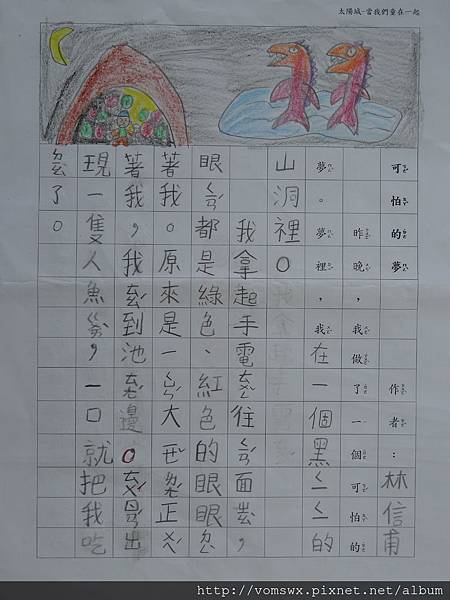 太陽城-當我們童在一起
可怕的夢 作者：林信甫
昨晚，我做了一個可怕的
夢。夢裡，我在一個黑ㄑㄑ的
山洞裡。
我拿起手電 往 面 ，
眼 都是綠色、紅色的眼眼
著我。原來是一 大 正
著我，我 到池 邊。 出
現一隻人魚 ，一口就把我吃
了。
http://vomswx.pixnet.net/album